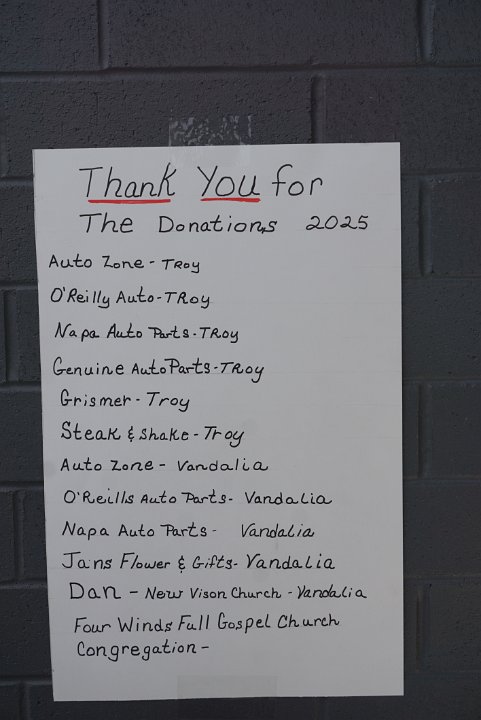 Thank You for
The Donations 2025
Auto Zone - Troy
O'Reilly Auto - Troy
Napa Auto Parts - Troy
Genuine Auto Parts - Troy
Grismer - Troy
Steak & Shake - Troy
Auto Zone - Vandalia
O'Reills Auto Parts - Vandalia
Napa Auto Parts - Vandalia
Jans Flower & Gifts - Vandalia
Dan - New Vison Church - Vandalia
Four Winds Full Gospel Church
Congregation -